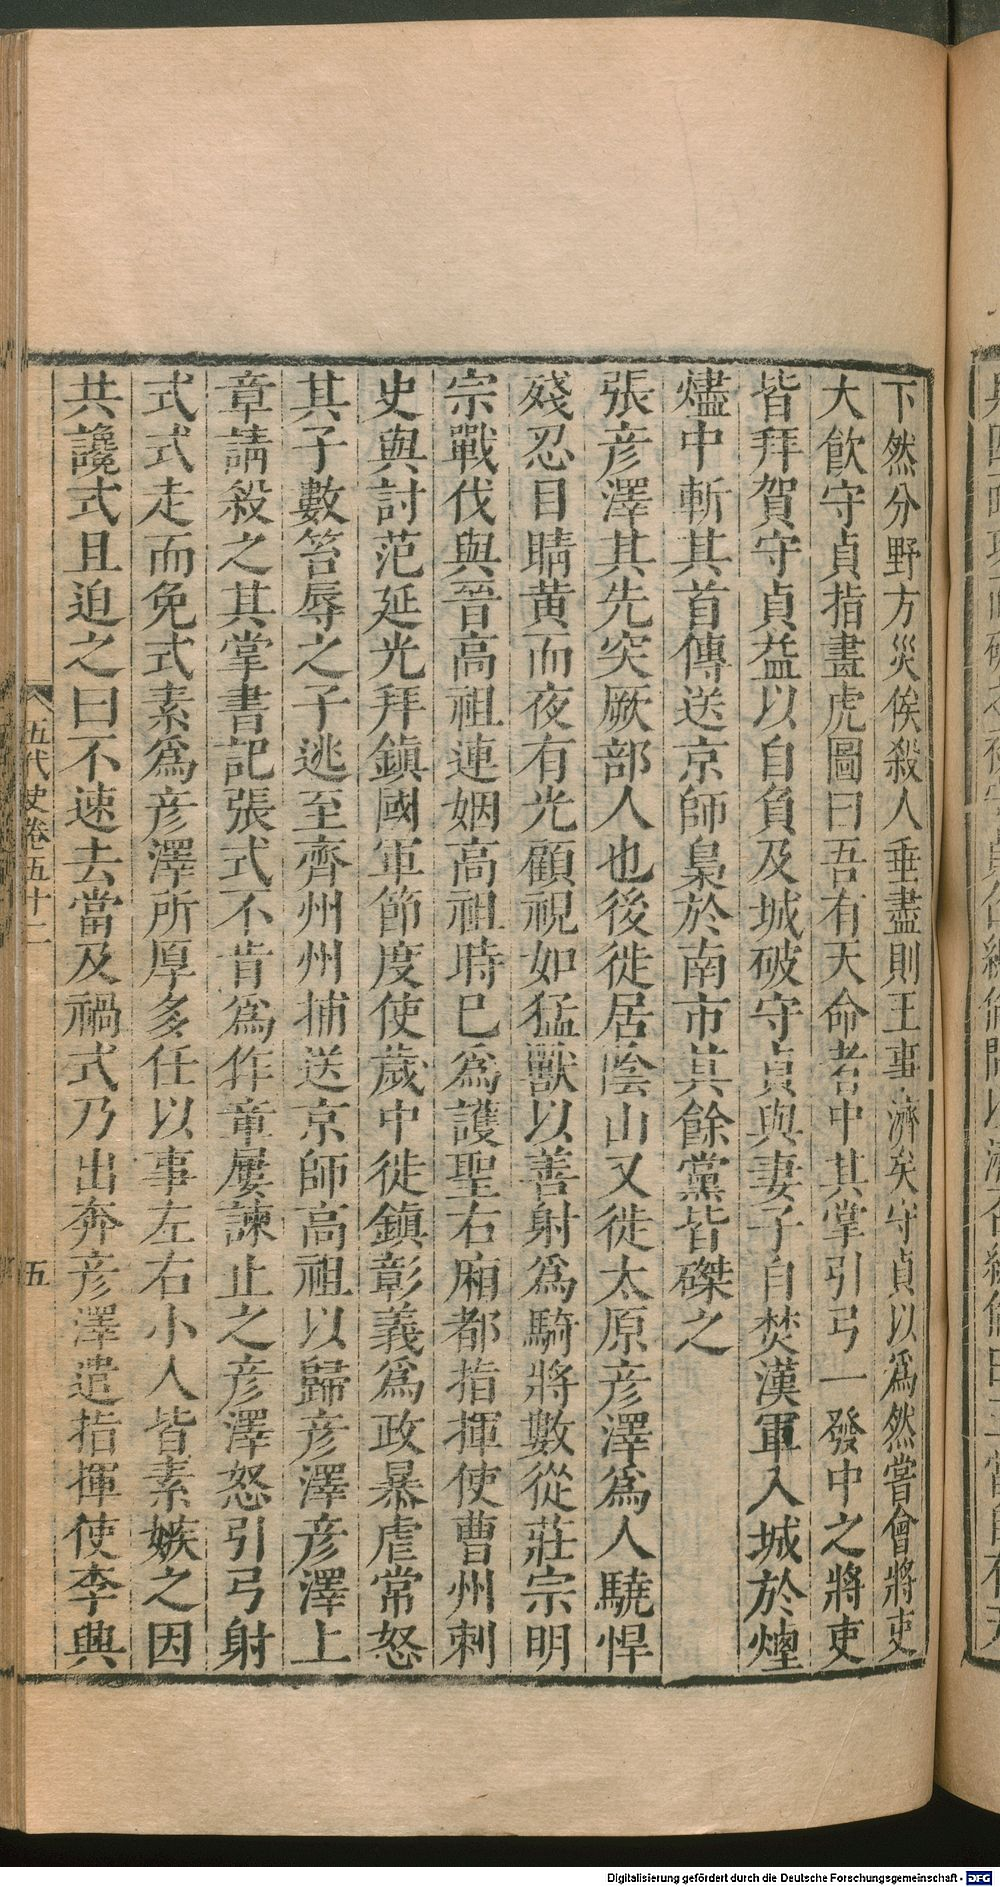 下然分野方災俟殺人垂盡則王事濟矣守貞以爲然嘗會將吏
大飮守貞指畫虎圖曰吾有天命者中其掌引弓一發中之將吏
皆拜賀守貞益以自負及城破守貞與妻子自焚漢軍入城於煙
燼中斬其首傳送京師梟於南市其餘黨皆磔之
張彥澤其先突厥部人也後徙居陰山又徙太原彥澤爲人驍悍
殘忍目睛黃而夜有光顧視如猛獸以善射爲騎將數從莊宗明
宗戰伐與晉高祖連姻高祖時巳爲護聖右廂都指揮使曹州刺
史與討范延光拜鎮國軍節度使歲中徙鎮彰義爲政暴虐常怒
其子數笞辱之子逃至齊州州捕送京師高祖以歸彥澤彥澤上
章請殺之其掌書記張式不肯爲作章屢諫止之彥澤怒引弓射
式式走而免式素爲彥澤所厚多任以事左右小人皆素嫉之因
共讒式且迫之曰不速去當及禍式乃出奔彥澤遣指揮使李興
五代史卷五十二
五
Digitalisierung gefördert durch die Deutsche Forschungsgemeinschaft - DFG